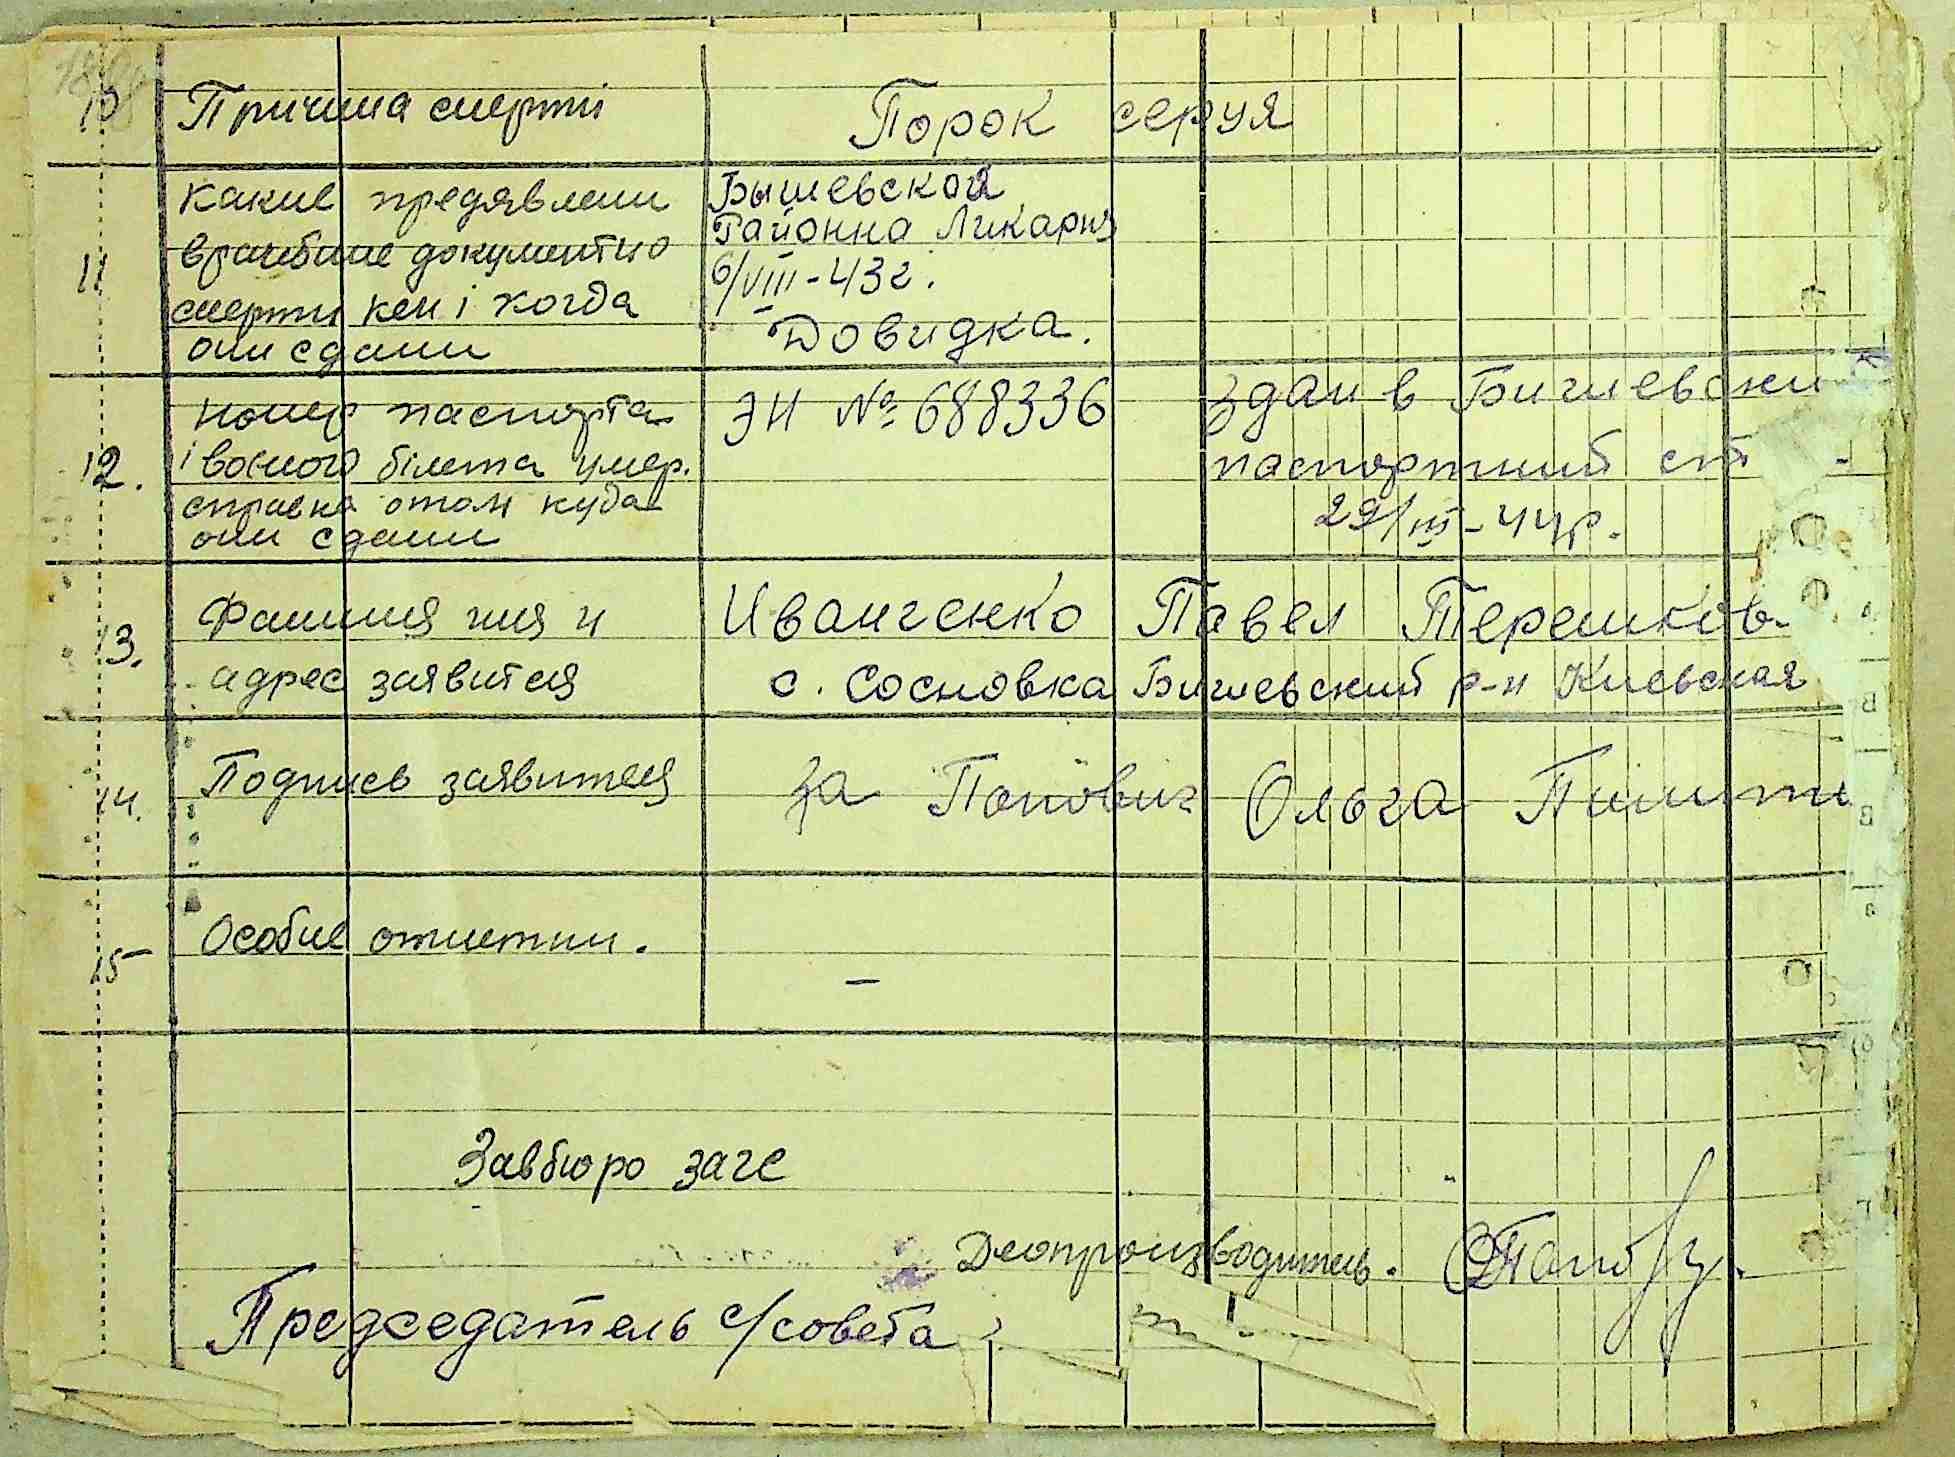 10 Причина смерти Порок серця
11 Какие предявлени Бышевской
врачебние документи о Районна Ликарня
смерти кем і когда 6/VIII-43г.
они сдани Довидка.
12. Номер паспорта ЭН № 688336 Здан в Бишевски
і воєного білета умер. паспортний ст
справка о том куда 29/III-44р.
они сдани
13. Фамилия имя и Иванченко Павел Терешков.
адрес заявителя с. Сосновка Бишевский р-н Киевская
14. Подпись заявителя За Попович Ольга
15 Особие отметки. –
Завбюро загс
Делопроизводитель.
Председатель с/совета